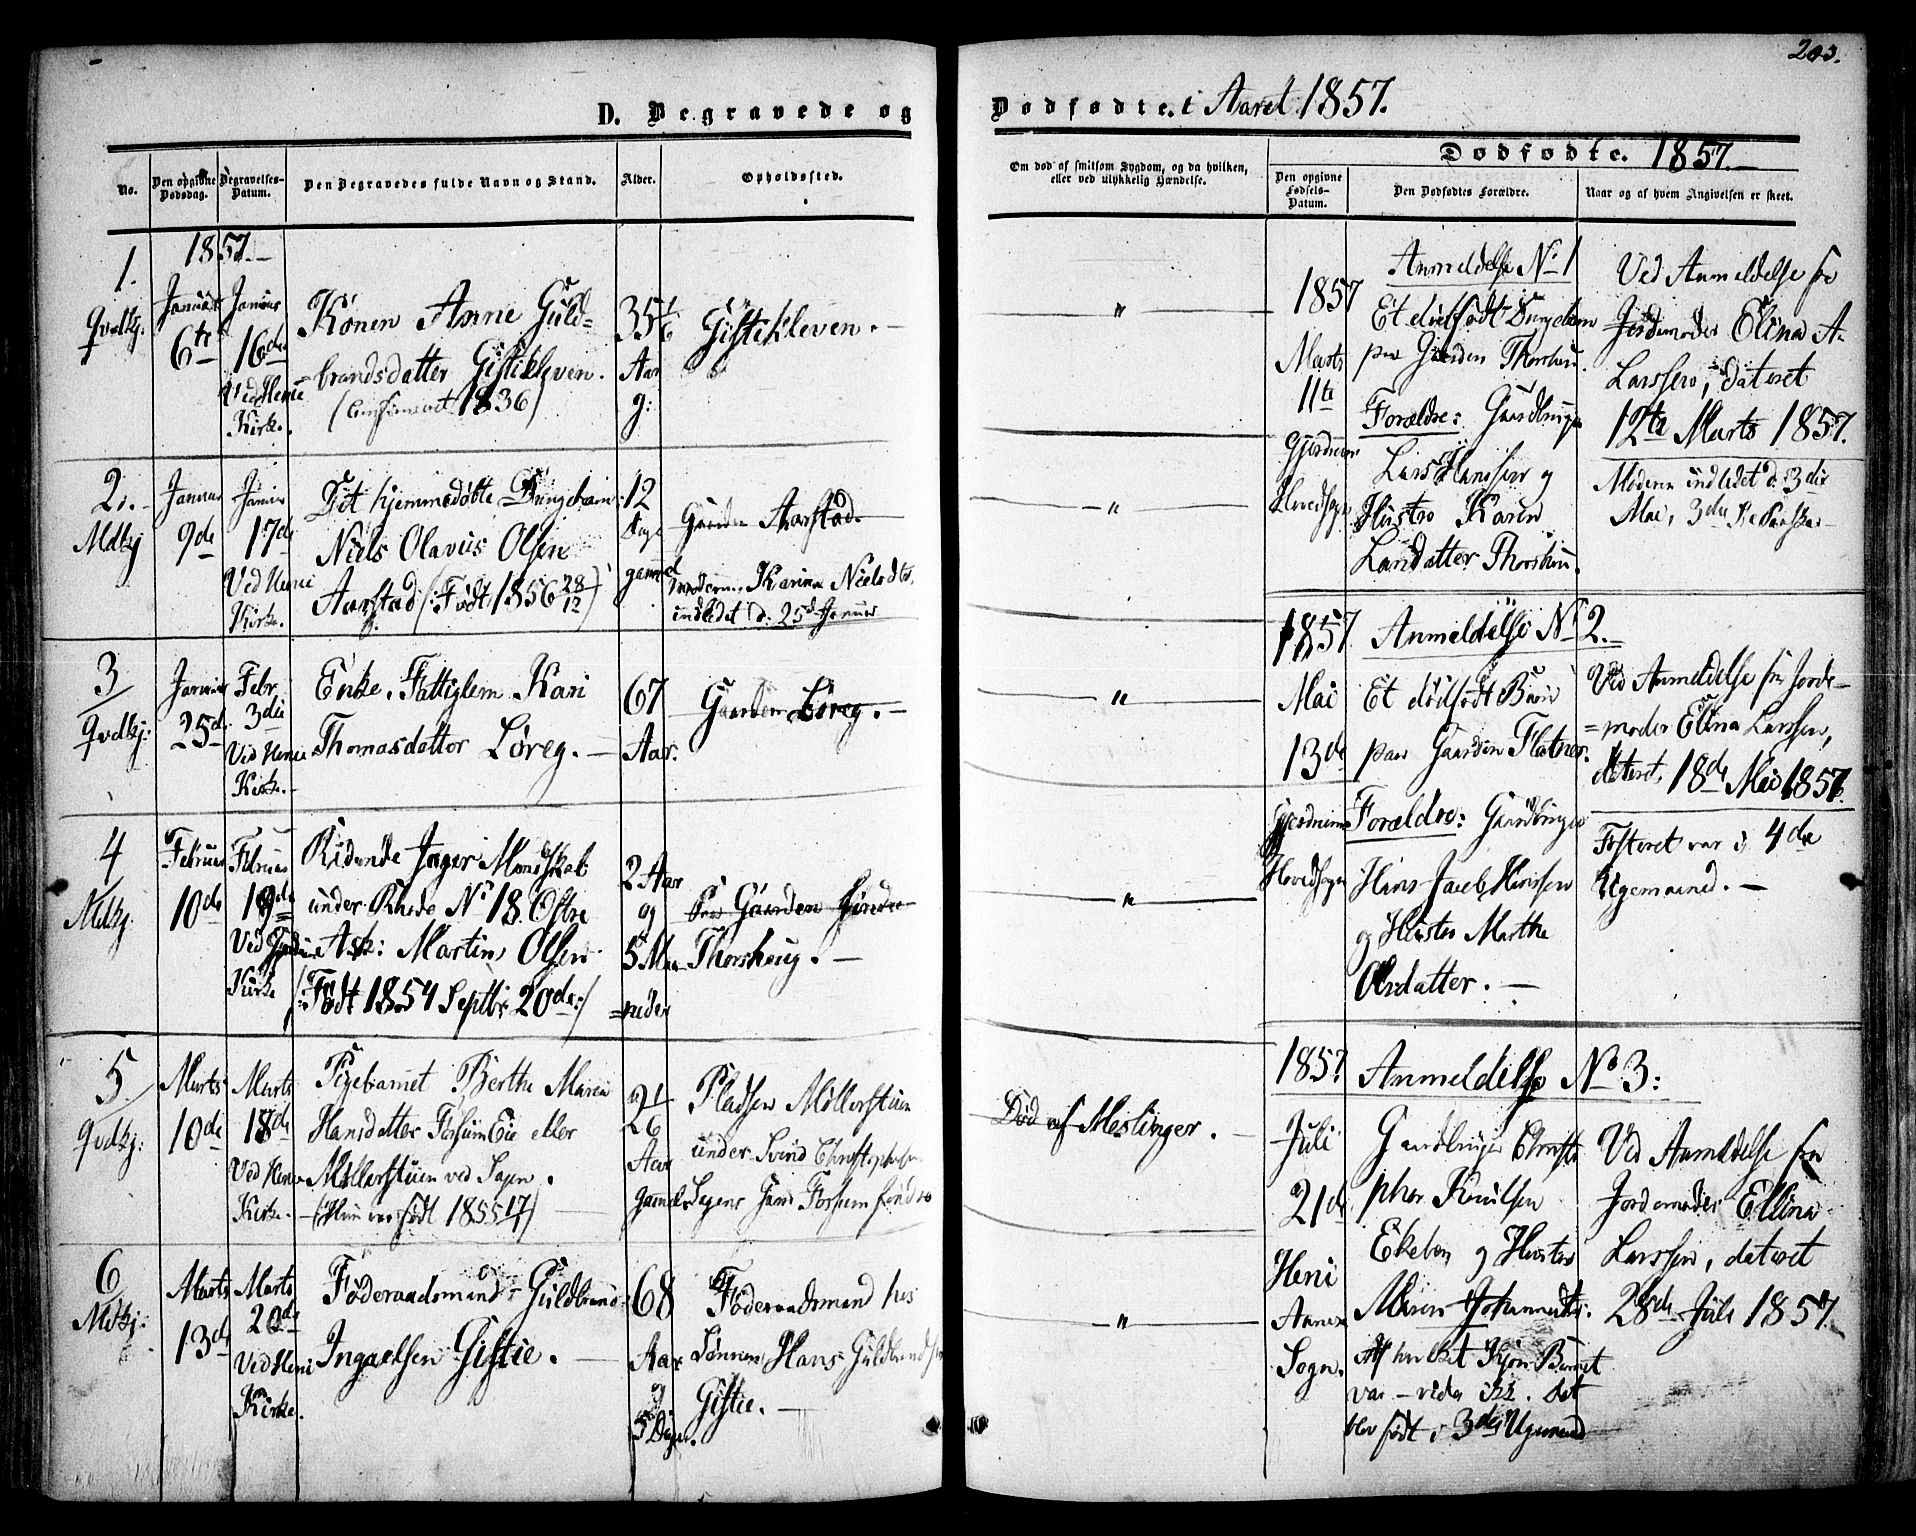 203.
D. Begravede og Dødfødte. i Aaret 1857.
No.
Den opgivne Dødsdag.
Begravelses-Datum.
Den Begravedes fulde Navn og Stand.
Alder.
Opholdssted.
Om død af smitsom Sygdom, og da hvilken,
eller ved ulykkelig Hændelse.
Dødfødte. 1857.
Den opgivne
Fødsels-
Datum.
Den Dødfødtes Forældre.
Naar og af hvem Angivelsen er skeet.
1857.
1.
Qvdkj.
Januar
6te
Januar
16de
Ved Henie
Kirke.
Konen Anne Guld=
=brandsdatter Gistikleven.
(Confirmeret 1836)
35
Aar
g:
Gistikleven. —
"
2.
Mdkj
Januar
9de
Januar
17de
Ved Heni
Kirke.
Det hjemmedøbte Drengebarn
Niels Olavus Olsen
Aarstad (: Født 1856 28/12)
12
Dage
gammel
Gaarden Aarstad.
Moderen Karina Nielsdtr.
indledet d: 25d Januar
"
3
Qvdkj:
Januar
25de
Febr.
3die
Ved Henie
Kirke.
Enke, Fattiglem Kari
Thomasdatter Løreg. —
67
Aar.
Gaarden Løreg. —
"
4
Mdkj.
Februar
10de
Februar
19de
Ved
Kirke
Ridende Jæger Mandskab
under Rhode No 18. Østre
Ask: Martin Olsen
(: Født 1854 Septbr 20de:)
2 Aar
og
5 Maa
=neder
Paa Gaarden Søndre
Thorshoug. —
"
5.
Qvdkj:
Marts
10de
Marts
18de
Ved Henie
Kirke.
Pigebarnet Berthe Maria
Hansdatter Forsum Eie eller
Møllerstuen ved Sagen.
(Hun var født 1855 17/)
21/26
Aar
gammel
Pladsen Møllerstuen
under Svend Christophersen
Segens Gaard Forsum søndre
Død af Meslinger.
6
Mdkj:
Marts
13de
Marts
20de
Ved Heni
Kirke.
Føderaadsmand Guldbrand
Ingvelsen Gistie. —
68
Aar
g
5 Dage.
Føderaadsmand hos
Sønnen Hans Guldbrandsen
Gistie. —
"
1857
Marts
11te
Gjerdrum
Hovedsogn
Anmeldelse No 1
Et dødfødt Drengebarn
paa Gaarden Thorshou.
Forældre: Gaardbruger
Lars Hanssen og
Hustro Karen
Larsdatter Thorshou.
Ved Anmeldelse fra
Jordemoder Elina A.
Larssen, dateret
12te Marts 1857.
Moderen indledet d: 3die
Mai, 3die S. e. Paaske.
1857
Mai
13de
Gjerdrum
Hovedsogn
Anmeldelse No 2.
Et dødfødt Barn
paa Gaarden Flatner.
Forældre: Gaardbruger
Hans Jacob Hanssen
og Hustro Marthe
Olsdatter. —
Ved Anmeldelse fra Jorde=
=moder Elina Larssen,
dateret 18de Mai 1857.
Fosteret var i 4de
Ugemaaned. —
1857.
Juli
21de
Heni
Annex
Sogn.
Anmeldelse No 3:
Gaardbruger Christo
pher Knudsen
Ekeben og Hustro
Maren Johannesdtr.
Af hvilket Kjøn Barnet
var — vides ikke. Det
blev født i 3die Ugemaaned
Ved Anmeldelse fra
Jordemoder Ellina
Larssen, dateret
28de Juli 1857.